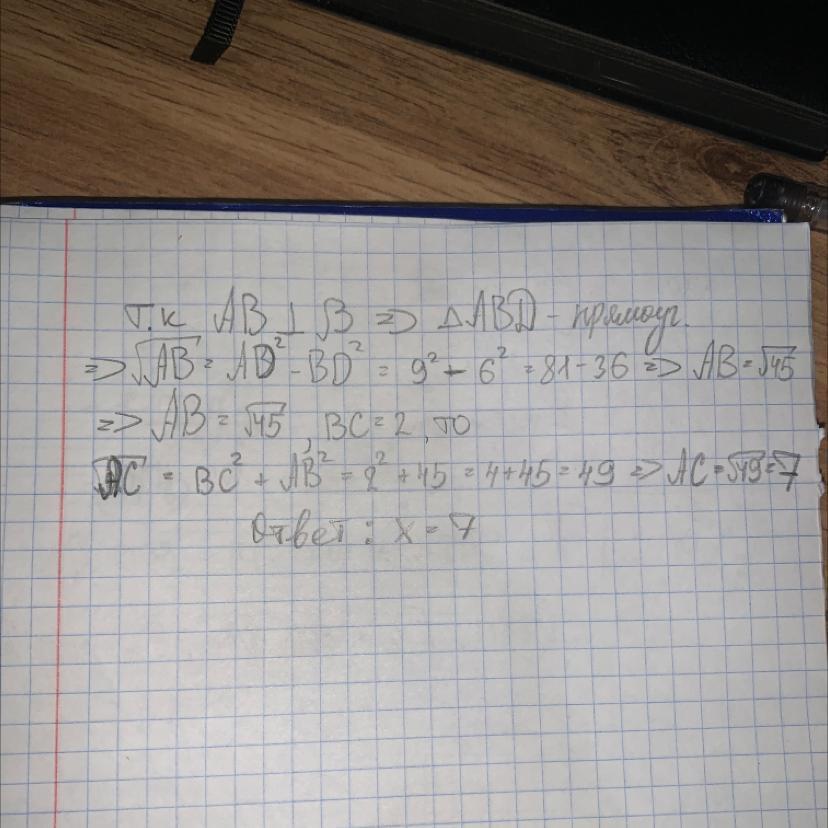 т.к AB ⊥ β => △ABD - прямоуг.
=> √AB = AD² - BD² = 9² - 6² = 81 - 36 => AB = √45
=> AB = √45, BC = 2, то
√AC = BC² + AB² = 2² + 45 = 4 + 45 = 49 => AC = √49 = √7
Ответ: x = 7